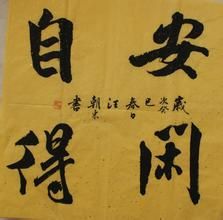 安闲
自得
歲次癸巳春日汪朝东書